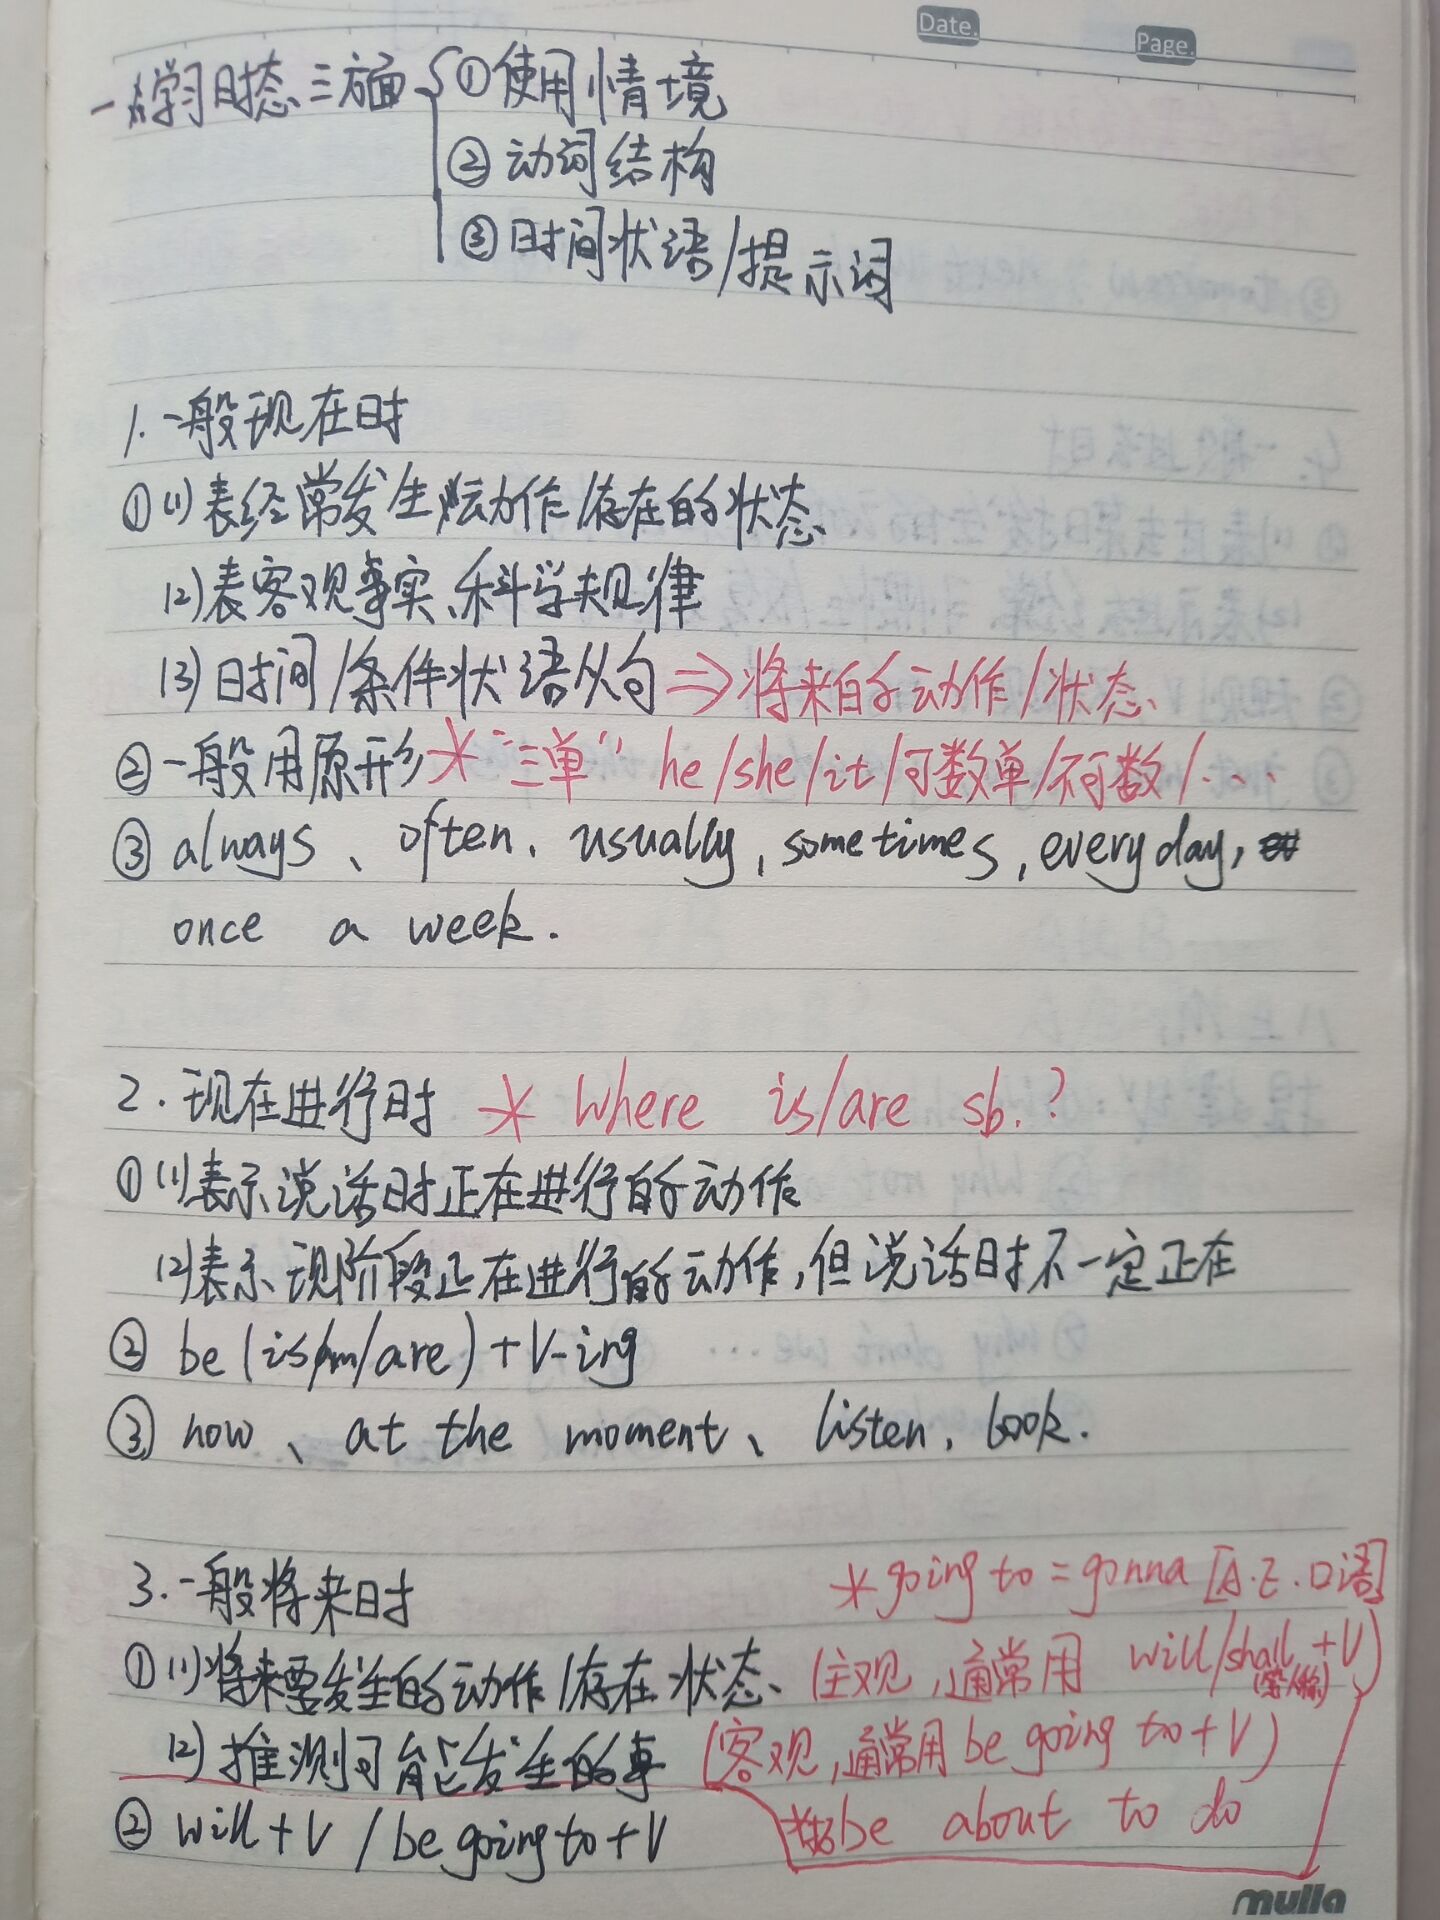 Date.
Page.
学习时态三方面
①使用情境
②动词结构
③时间状语/提示词
1.一般现在时
①(1)表经常发生动作/存在的状态
(2)表客观事实、科学规律
(3)时间/条件状语从句⇒将来的动作/状态
②一般用原形 * “三单” he/she/it/可数单/不可数/...
③ always、often、usually, sometimes, every day,
once a week.
2.现在进行时 * Where is/are sb.?
①(1)表示说话时正在进行的动作
(2)表示现阶段正在进行的动作,但说话时不一定正在
② be(is/am/are)+V-ing
③ now、at the moment、listen, look.
3.一般将来时 *going to = gonna [A.E.口语]
①(1)将来要发生的动作/存在状态 (主观,通常用 will/shall+V)
(第一人称)
(2)推测可能发生的事 (客观,通常用 be going to+V)
② will+V / be going to+V be about to do
mulla